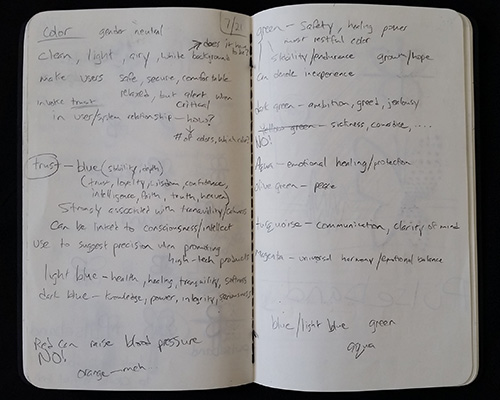 Color gender neutral
7/21
clean, light, airy, white background
does it have to be?
make users safe, secure, comfortable
relaxed, but alert when
critical
invoke trust
in user/system relationship - how?
# of colors, which color?
trust - blue (stability, depth)
(trust, loyalty, wisdom, confidence,
intelligence, faith, truth, heaven)
Strongly associated with tranquility/calmness
Can be linked to consciousness/intellect
Use to suggest precision when promoting
high-tech products
light blue - health, healing, tranquility, softness
dark blue - knowledge, power, integrity, seriousness
Red can raise blood pressure
NO!
orange - meh...
green - Safety, healing power
most restful color
stability/endurance grown/hope
can denote inexperience
dark green - ambition, greed, jealousy
Yellow green - sickness, cowardice, ....
NO!
Aqua - emotional healing/protection
olive green - peace
turquoise - communication, clarity of mind
Magenta - universal harmony/emotional balance
blue/light blue green
aqua